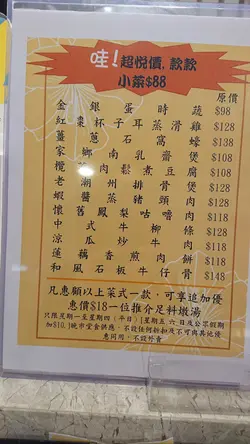 哇！超悅價，款款
小菜$88
原價
金銀蛋時蔬 $98
紅棗杯子耳蒸滑雞 $128
薑蔥石窩蠔 $138
家鄉南乳齋煲 $108
欖菜肉鬆煮豆腐 $108
老潮州排骨煲 $128
蝦醬蒸豬頸肉 $128
懷舊鳳梨咕嚕肉 $118
中式牛柳條 $128
涼瓜炒牛肉 $118
蓮藕香煎肉餅 $118
和風石板牛仔骨 $148
凡惠顧以上菜式一款，可享追加優
惠價$18一位推介足料燉湯
只限星期一至星期四（平日）星期五六日及公眾假期
加$10，晚市堂食供應，不設任何折扣及不可與其他優
惠同用，不設外賣